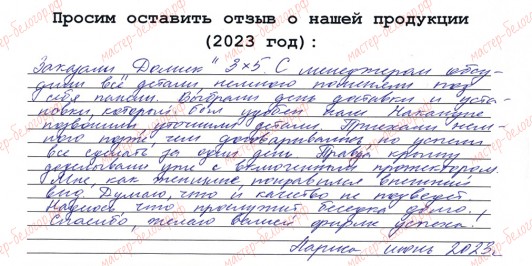 Просим оставить отзыв о нашей продукции
(2023 год):
Заказали Домик "3×5. С менеджером обсу-
дили всё детали, немного поменяли под
себя панели. Выбрали день доставки и уста-
новки, который был удобен нам. Накануне
позвонили, уточнили детали. Приехали нем-
ного позже, чем договаривались, но успели
всё сделать за один день. Правда, крышу
доделывали уже с включенным прожектором.
Мне, как женщине понравился внешний
вид. Думаю, что и качество не подведёт.
Надеюсь что прослужит беседка долго.
Спасибо, желаю вашей фирме успеха.
Лариса июнь 2023г